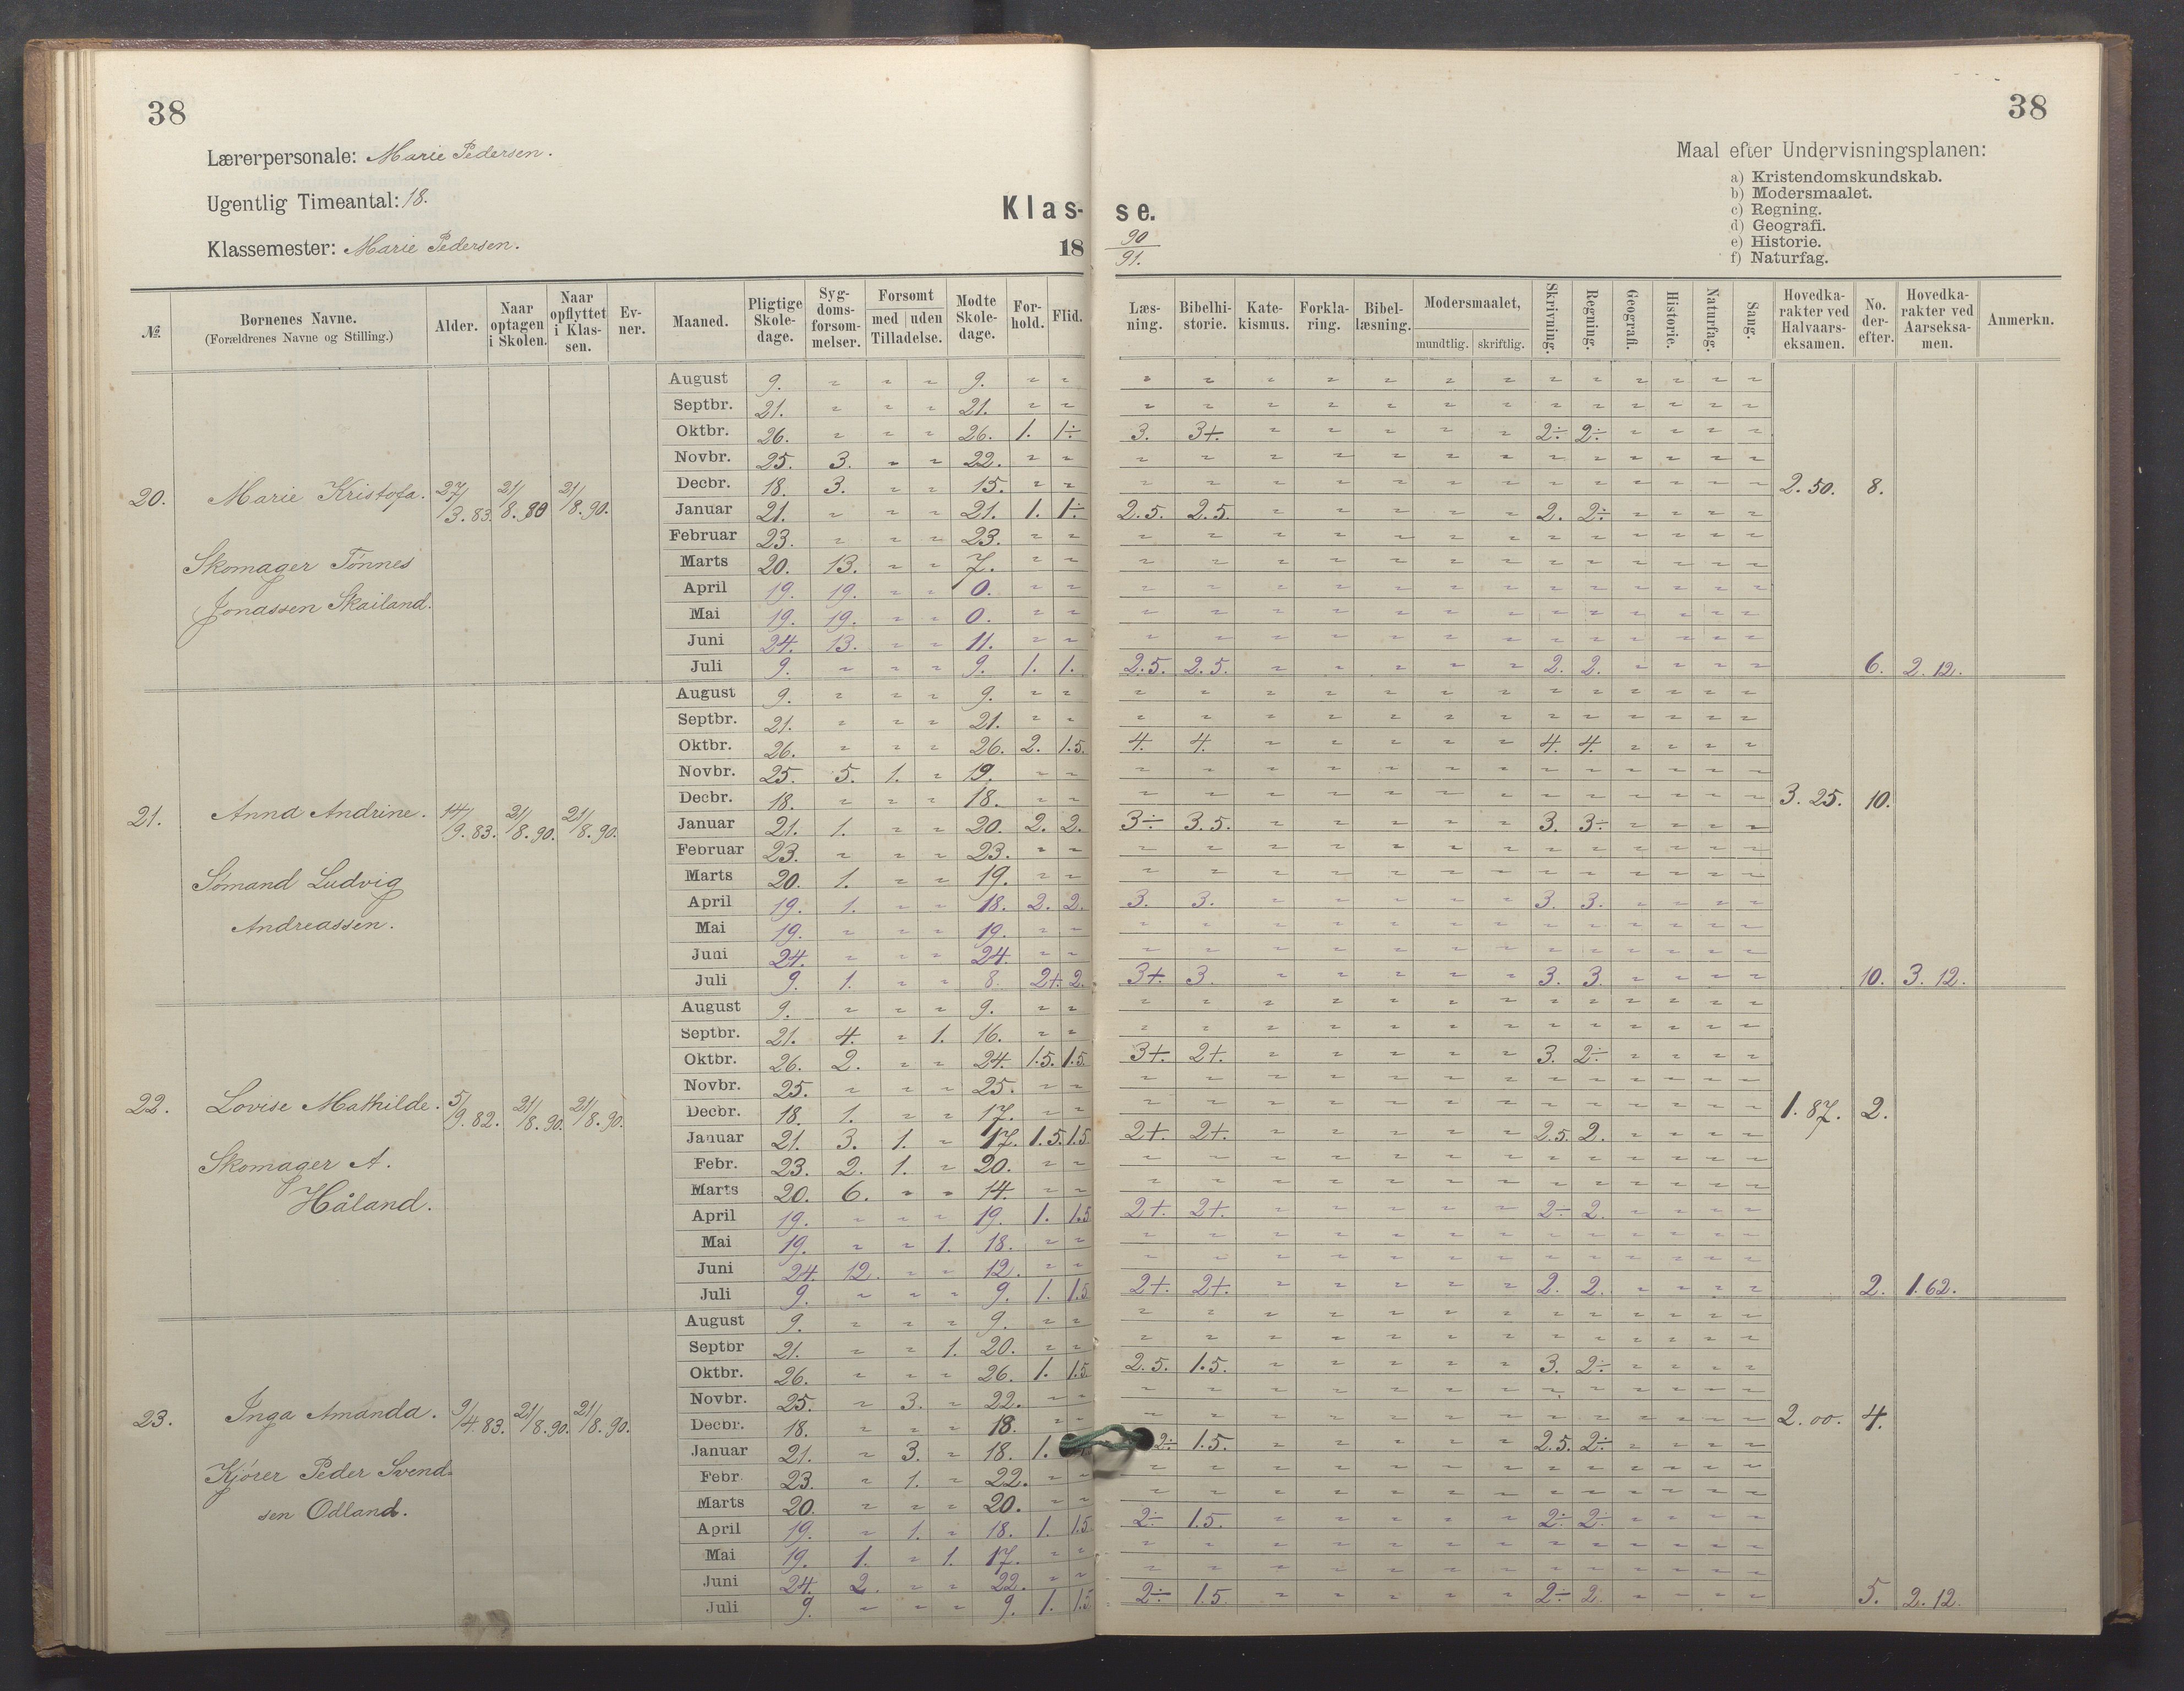 38
38
Lærerpersonale: Marie Pedersen.
Ugentlig Timeantal: 18.
Klassemester: Marie Pedersen.
Klas-se.
18 90/91.
Maal efter Undervisningsplanen:
a) Kristendomskundskab.
b) Modersmaalet.
c) Regning.
d) Geografi.
e) Historie.
f) Naturfag.
№ | Børnenes Navne. (Forældrenes Navne og Stilling.) | Alder. | Naar optagen i Skolen. | Naar opflyttet i Klassen. | Evner. | Maaned. | Pligtige Skoledage. | Sygdomsforsømmelser. | Forsømt med Tilladelse. | uden | Mødte Skoledage. | Forhold. | Flid. | Læsning. | Bibelhistorie. | Katekismus. | Forklaring. | Bibellæsning. | Modersmaalet, mundtlig. | skriftlig. | Skrivning. | Regning. | Geografi. | Historie. | Naturfag. | Sang. | Hovedkarakter ved Halvaarseksamen. | No. derefter. | Hovedkarakter ved Aarseksamen. | Anmerkn.
20. Marie Kristofa. 27/3.83. 21/8.90 21/8.90. 2.50. 8.
Skomager Tönnes
Jonassen Skailand.
August 9. " " " 9. " " " " " " " " " " " " " " "
Septbr. 21. " " " 21. " " " " " " " " " " " " " " "
Oktbr. 26. " " " 26. 1. 1÷ 3. 3+. " " " " " 2÷ 2÷ " " " "
Novbr. 25. 3. " " 22. " " " " " " " " " " " " " " "
Decbr. 18. 3. " " 15. " " " " " " " " " " " " " " "
Januar 21. " " " 21. 1. 1÷ 2.5. 2.5. " " " " " 2. 2÷ " " " "
Februar 23. " " " 23. " " " " " " " " " " " " " " "
Marts 20. 13. " " 7. " " " " " " " " " " " " " " "
April 19. 19. " " 0. " " " " " " " " " " " " " " "
Mai 19. 19. " " 0. " " " " " " " " " " " " " " "
Juni 24. 13. " " 11. " " " " " " " " " " " " " " "
Juli 9. " " " 9. 1. 1. 2.5. 2.5. " " " " " 2. 2. " " " " 6. 2.12.
21. Anna Andrine. 14/9.83. 21/8.90. 21/8.90. 3.25. 10.
Sömand Ludvig
Andreassen.
August 9. " " " 9. " " " " " " " " " " " " " " "
Septbr. 21. " " " 21. " " " " " " " " " " " " " " "
Oktbr. 26. " " " 26. 2. 1.5. 4. 4. " " " " " 4. 4. " " " "
Novbr. 25. 5. 1. " 19. " " " " " " " " " " " " " " "
Decbr. 18. " " " 18. " " " " " " " " " " " " " " "
Januar 21. 1. " " 20. 2. 2. 3÷ 3.5. " " " " " 3. 3÷ " " " "
Februar 23. " " " 23. " " " " " " " " " " " " " " "
Marts 20. 1. " " 19. " " " " " " " " " " " " " " "
April 19. 1. " " 18. 2. 2. 3. 3. " " " " " 3. 3. " " " "
Mai 19. " " " 19. " " " " " " " " " " " " " " "
Juni 24. " " " 24. " " " " " " " " " " " " " " "
Juli 9. 1. " " 8. 2+. 2. 3+. 3. " " " " " 3. 3. " " " " 10. 3.12.
22. Lovise Mathilde. 5/9.82. 21/8.90. 21/8.90. 1.87. 2.
Skomager A.
Håland.
August 9. " " " 9. " " " " " " " " " " " " " " "
Septbr. 21. 4. " 1. 16. " " " " " " " " " " " " " " "
Oktbr. 26. 2. " " 24. 1.5. 1.5. 3+. 2+. " " " " " 3. 2÷ " " " "
Novbr. 25. " " " 25. " " " " " " " " " " " " " " "
Decbr. 18. 1. " " 17. " " " " " " " " " " " " " " "
Januar 21. 3. 1. " 17. 1.5. 1.5 2+. 2+. " " " " " 2.5. 2. " " " "
Febr. 23. 2. 1. " 20. " " " " " " " " " " " " " " "
Marts 20. 6. " " 14. " " " " " " " " " " " " " " "
April 19. " " " 19. 1. 1.5 2+. 2+. " " " " " 2÷ 2. " " " "
Mai 19. " " 1. 18. " " " " " " " " " " " " " " "
Juni 24. 12. " " 12. " " " " " " " " " " " " " " "
Juli 9. " " " 9. 1. 1.5 2+. 2+. " " " " " 2. 2. " " " " 2. 1.62.
23. Inga Amanda. 9/4.83. 21/8.90. 21/8.90. 2.00. 4.
Kjörer Peder Svend-
sen Odland.
August 9. " " " 9. " " " " " " " " " " " " " " "
Septbr 21. " " 1. 20. " " " " " " " " " " " " " " "
Oktbr. 26. " " " 26. 1. 1.5. 2.5. 1.5. " " " " " 3. 2÷ " " " "
Novbr. 25. " 3. " 22. " " " " " " " " " " " " " " "
Decbr. 18. " " " 18. " " " " " " " " " " " " " " "
Januar 21. " 3. " 18. 1. 2÷ 1.5. " " " " " 2.5. 2÷ " " " "
Febr 23. " 1. " 22. " " " " " " " " " " " " " " "
Marts 20. " " " 20. " " " " " " " " " " " " " " "
April 19. " 1. " 18. 1. 1.5 2÷ 1.5. " " " " " 2÷ 2÷ " " " "
Mai 19. 1. " 1. 17. " " " " " " " " " " " " " " "
Juni 24. 2. " " 22. " " " " " " " " " " " " " " "
Juli 9. " " " 9. 1. 1.5 2÷ 1.5. " " " " " 2÷ 2. " " " " 5. 2.12.